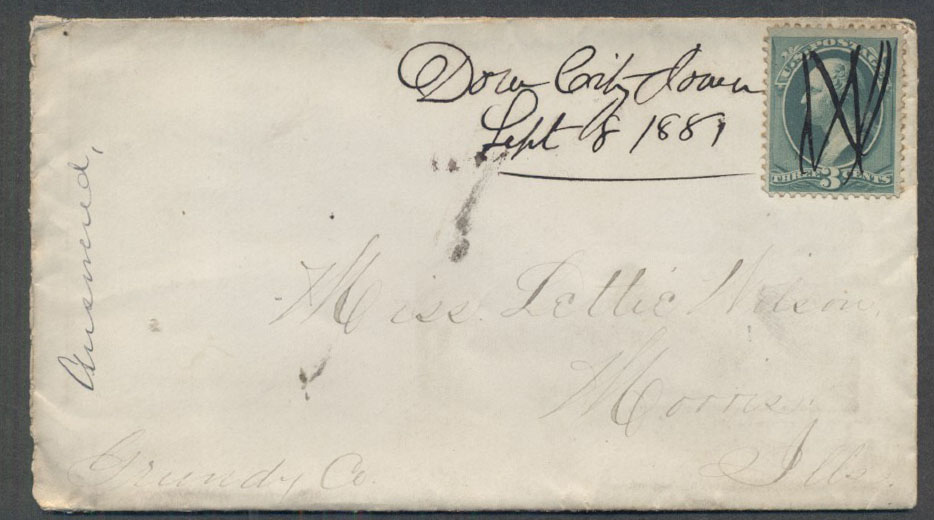 Dow City Iowa
Sept 8 1881
U.S. POSTAGE
THREE 3 CENTS
Answered,
Miss Lettie Wilson,
Morris
Ills.
Grundy Co.